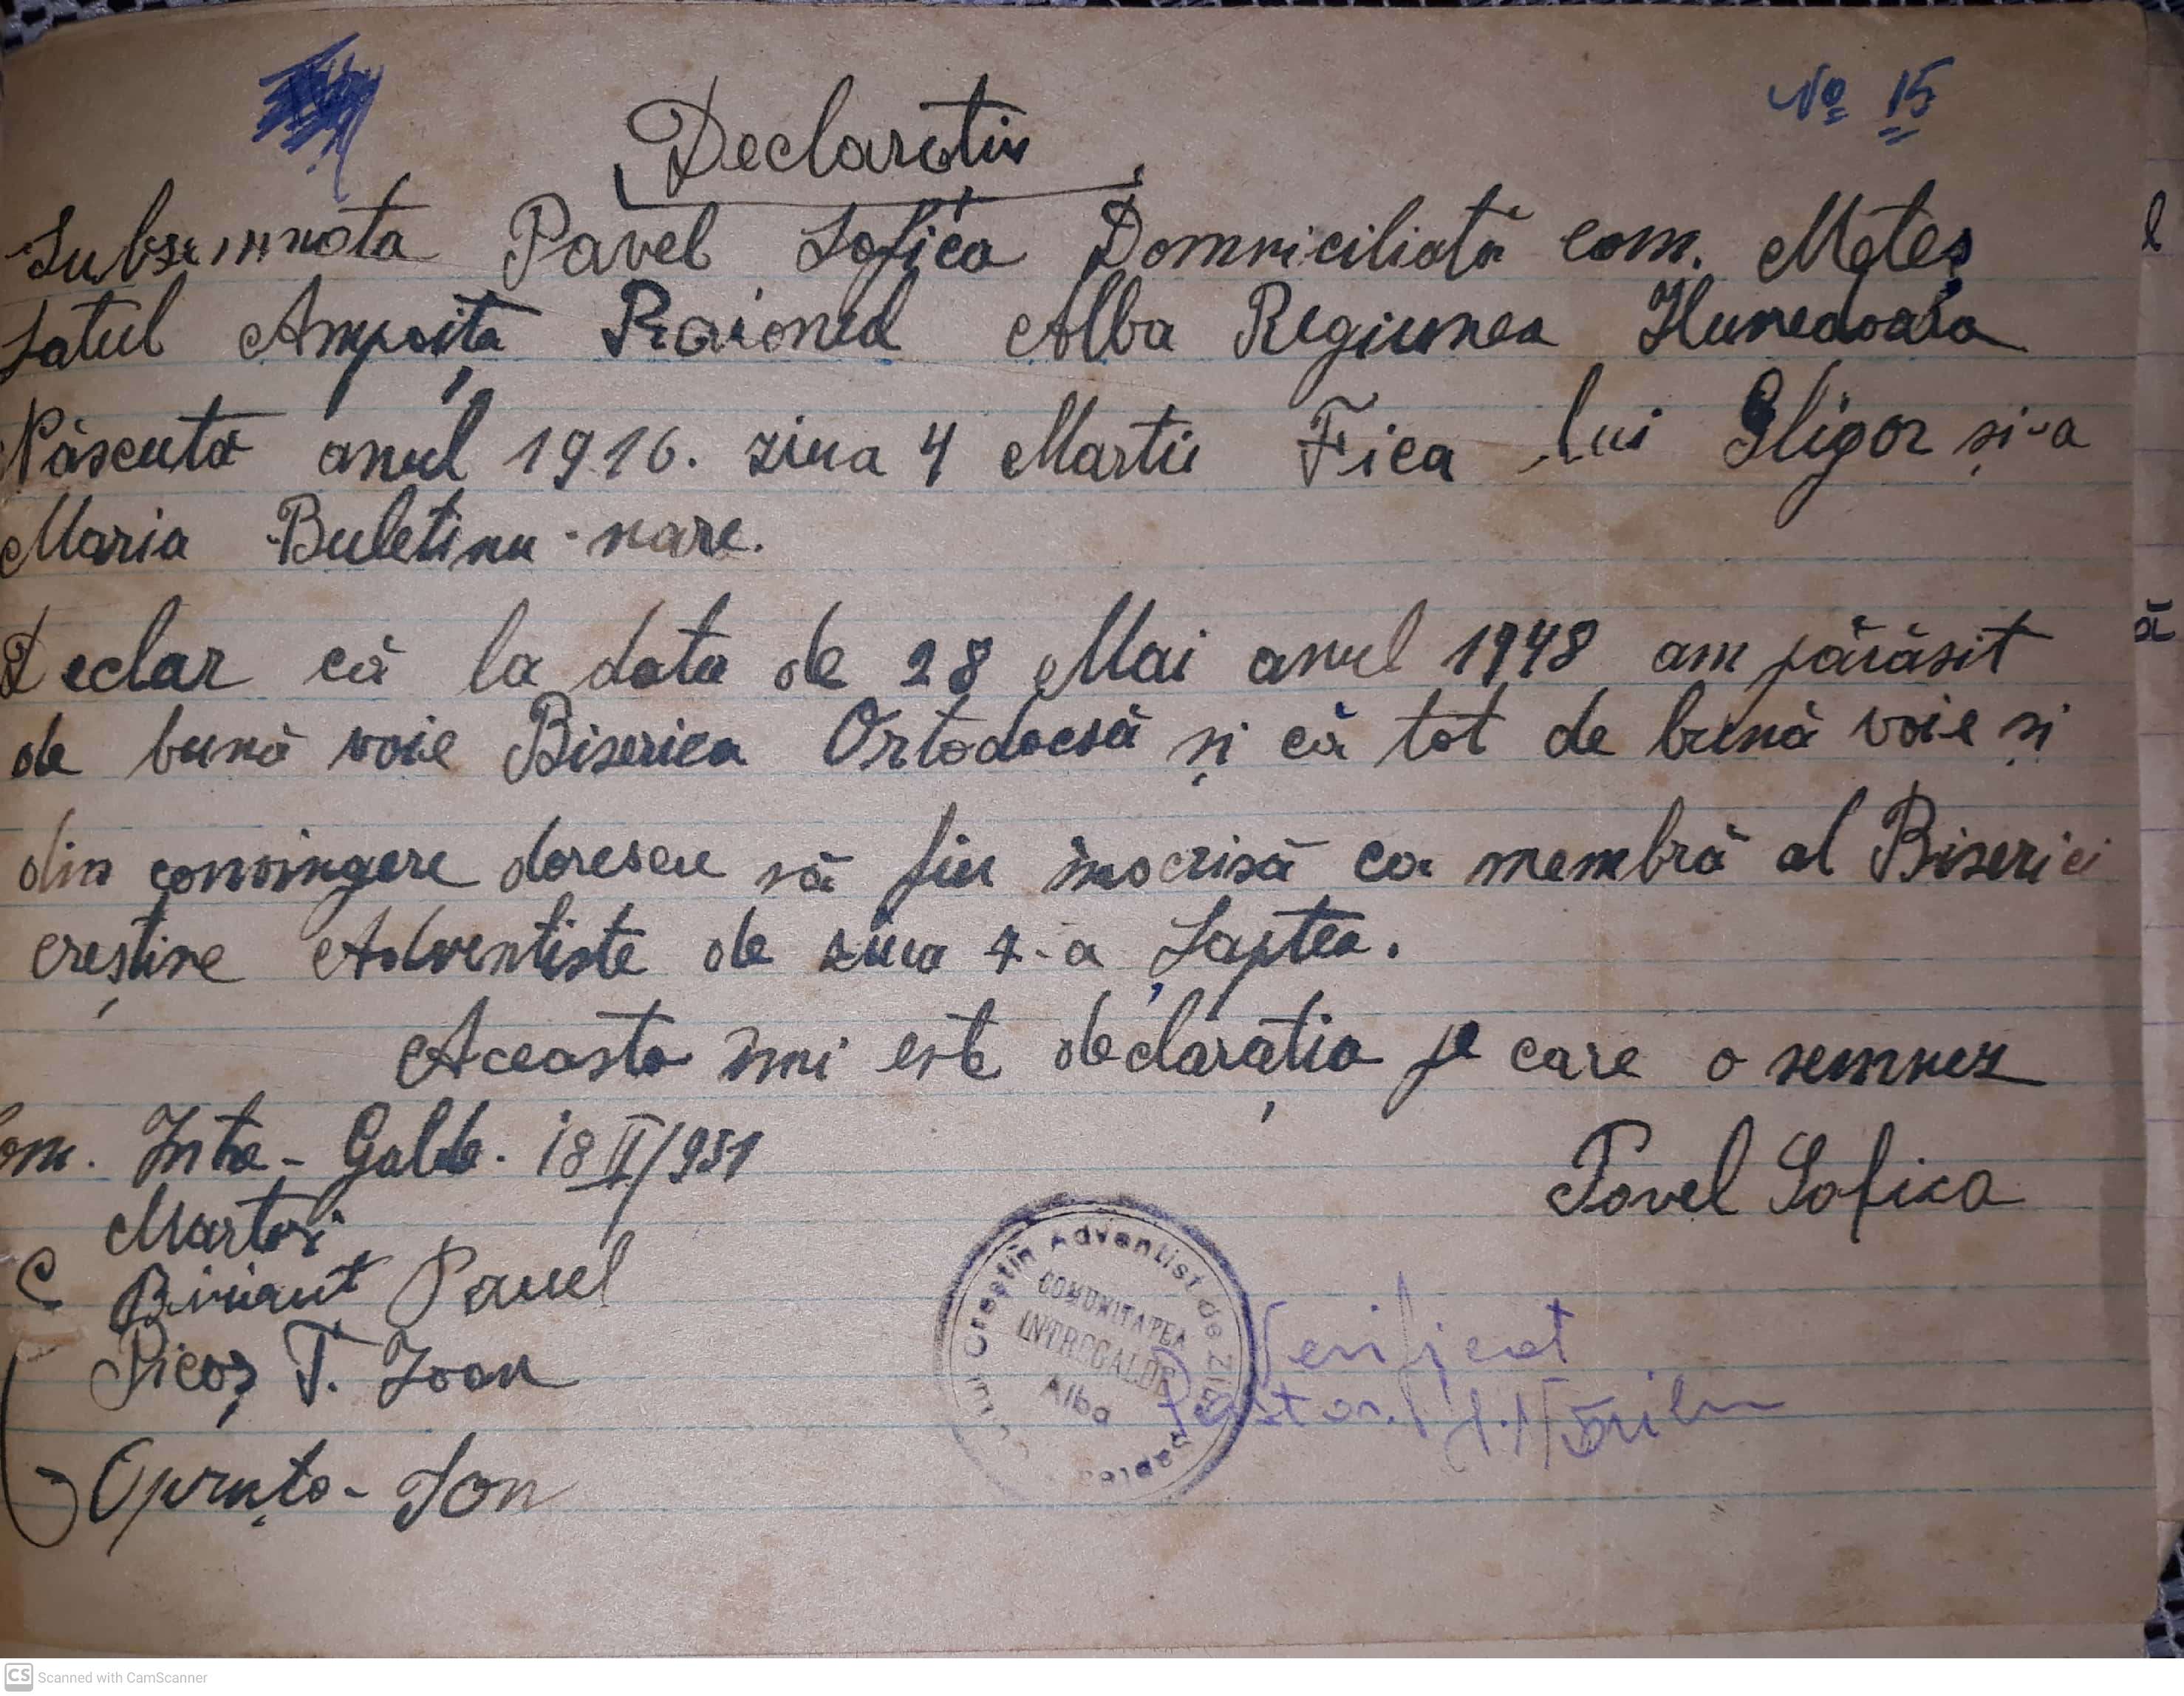 No 15
Declarație
Subsemnata Pavel Sofica Domniciliată com. Meteș
Satul Ampoița Raionul Alba Regiunea Hunedoara
Născută anul 1916. ziua 4 Martie Fica lui Gligor și-a
Maria Buletinu-nare.
Declar că la data de 28 Mai anul 1948 am părăsit
de bună voie Biserica Ortodocsă și că tot de bună voie și
din convingere dorescu să fiu înscrisă ca membră al Bisericei
creștine Adventiste de ziua 7-a Șaptea.
Aceasta îmi este declarația pe care o semnez
Com. Intre-Galde. 18 II/951
Pavel Sofica
Martori
Pavel
Picoș T. Ioan
Opruța-Ion
Creștin Adventist de Ziua Șaptea
COMUNITATEA
INTREGALDE
Alba
Verificat
Pastor.
CS Scanned with CamScanner